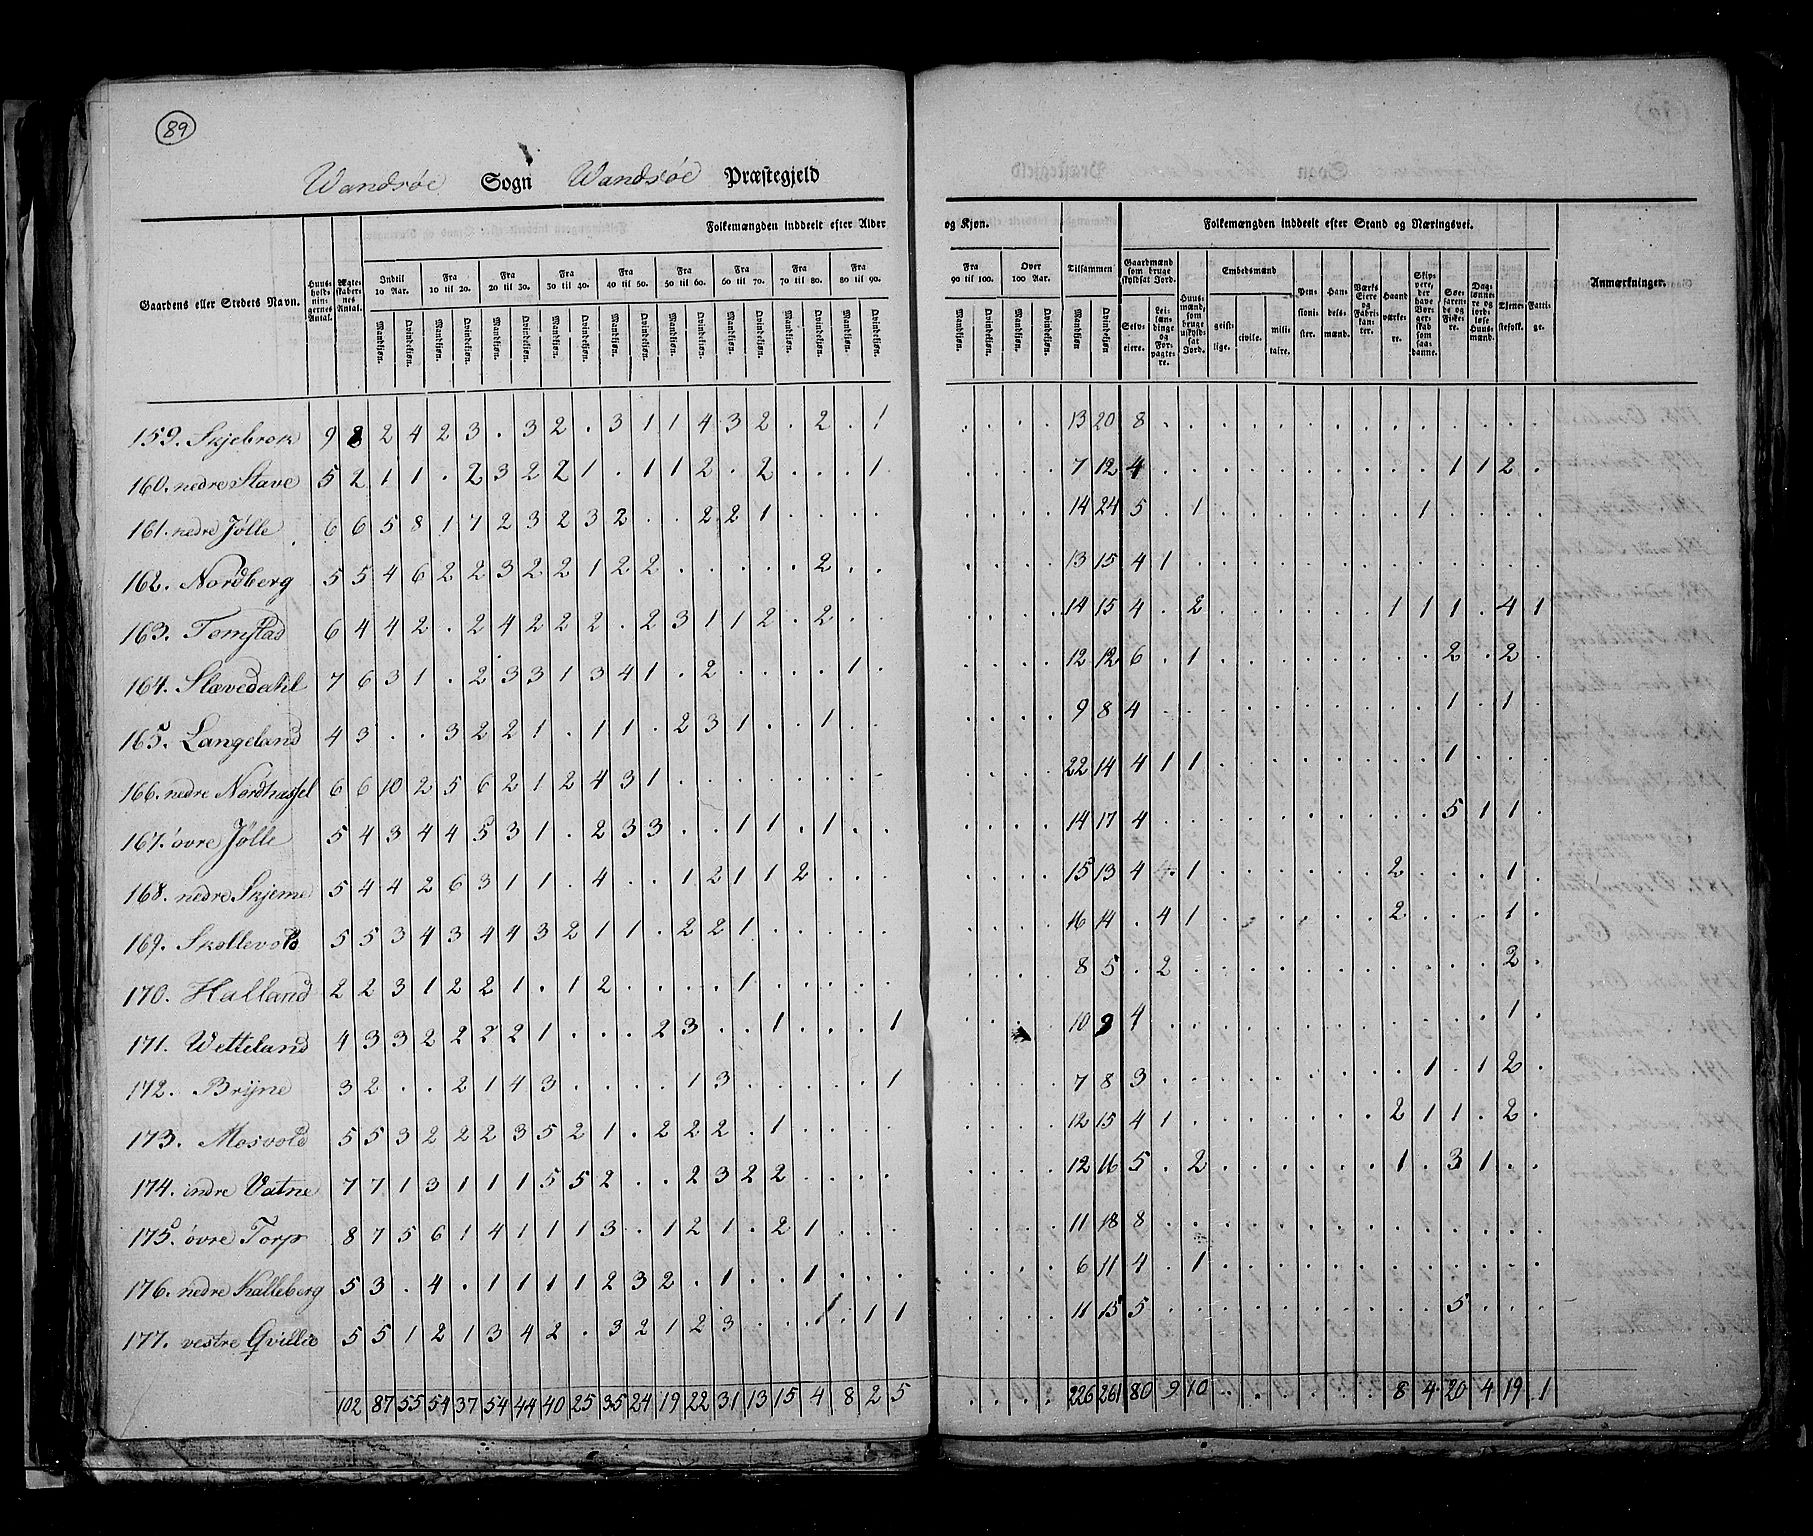 89
Wandsøe Sogn Wandsøe Præstegjeld
Folkemængden inddeelt efter Alder og Kjøn.
Folkemængden inddeelt efter Stand og Næringsvei.
Gaardens eller Stedets Navn.
Huus-holdnin-gernes Antal.
Ægte-skaber-nes Antal.
Indtil 10 Aar.
Fra 10 til 20.
Fra 20 til 30.
Fra 30 til 40.
Fra 40 til 50.
Fra 50 til 60.
Fra 60 til 70.
Fra 70 til 80.
Fra 80 til 90.
Fra 90 til 100.
Over 100 Aar.
Tilsammen
Mandkjøn. Qvindekjøn.
Gaardmænd som bruge skyldsat Jord.
Selv-eiere.
Lei-læn-dinge og For-pagte-re.
Huus-mænd, som bruge uskyld-sat Jord.
Embedsmænd
geist-lige.
civile.
mili-taire.
Pen-sioni-ster.
Han-dels-mænd.
Værks Eiere og Fabri-kan-ter.
Haand værke-re.
Skip-pere, der have Bor-ger-skab som saa-danne.
Søe-farende og Fiske-re.
Dag-lønne-re og jord-løse Huus-mænd.
Tjene-stefolk.
Fatti-ge.
Anmærkninger.
159. Skjebrok 9 8 2 4 2 3 . 3 2 . 3 1 1 4 3 2 . 2 . 1 . . . . 13 20 8 . . . . . . . . . . . . . .
160. nedre Stave 5 2 1 1 . 2 3 2 2 1 . 1 1 2 . 2 . . . 1 . . . . 7 12 4 . . . . . . . . . . 1 1 2 .
161. nedre Jølle 6 6 5 8 1 7 2 3 2 3 2 . . 2 2 1 . . . . . . . . 14 24 5 . 1 . . . . . . . 1 . . . .
162. Nordberg 5 5 4 6 2 2 3 2 2 1 2 2 . . . . . 2 . . . . . . 13 15 4 1 . . . . . . . . . . . . .
163. Tomstad 6 4 4 2 . 2 4 2 2 2 . 2 3 1 1 2 . 2 . . . . . . 14 15 4 . 2 . . . . . . 1 1 1 . 4 1
164. Stavedahl 7 6 3 1 . 2 3 3 1 3 4 1 . 2 . . . . 1 . . . . . 12 12 6 . 1 . . . . . . . . 2 . 2 .
165. Langeland 4 3 . . 3 2 2 1 . 1 1 . 2 3 1 . . 1 . . . . . . 9 8 4 . . . . . . . . . . 1 . 1 .
166. nedre Nordhassel 6 6 10 2 5 6 2 1 2 4 3 1 . . . . . . . . . . . . 22 14 4 1 1 . . . . . . . . 1 . . .
167. øvre Jølle 5 4 3 4 4 5 3 1 . 2 3 3 . . 1 1 . 1 . . . . . . 14 17 4 . . . . . . . . . . 5 1 1 .
168. nedre Skjeme 5 4 4 2 6 3 1 1 . 4 . . 1 2 1 1 2 . . . . . . . 15 13 4 . 1 . . . . . . 2 . . . 1 .
169. Skollevold 5 5 3 4 3 4 4 3 2 1 1 . 2 2 1 . . . . . . . . . 16 14 . 4 1 . . . . . . 2 . . . 1 .
170. Halland 2 2 3 1 2 2 1 . 1 2 . . . . 1 . . . . . . . . . 8 5 . 2 . . . . . . . . . . . 2 .
171. Wetteland 4 3 3 2 2 2 2 1 . . . 2 3 . . 1 . . . 1 . . . . 10 9 4 . . . . . . . . . . . . 1 .
172. Brijne 3 2 . . 2 1 4 3 . . . . 1 3 . . . . . 1 . . . . 7 8 3 . . . . . . . . . 1 . 1 2 .
173. Mosvold 5 5 3 2 2 2 3 5 2 1 . 2 2 2 . 1 . . . . . . . . 12 15 4 1 . . . . . . . 2 1 1 . 2 .
174. indre Vatne 7 7 1 3 1 1 1 5 5 2 . . 2 3 2 2 . . . . . . . . 12 16 5 . 2 . . . . . . 1 . 3 1 . .
175. øvre Torp 8 7 5 6 1 4 1 1 1 3 . 1 2 1 . 2 1 . . . . . . . 11 18 8 . . . . . . . . . . . . . .
176. nedre Kalleberg 5 3 . 4 . 1 1 1 1 2 3 2 . 1 . . 1 . . . . . . . 6 11 4 . 1 . . . . . . . . . . . .
177. vestre Qvillie 5 5 1 2 1 3 4 2 . 3 2 1 2 3 . . . 1 1 1 . . . . 11 15 5 . . . . . . . . . . 5 . . .
102 87 55 54 37 54 44 40 25 35 24 19 22 31 13 15 4 8 2 5 . . . . 226 261 80 9 10 . . . . . . 8 4 20 4 19 1